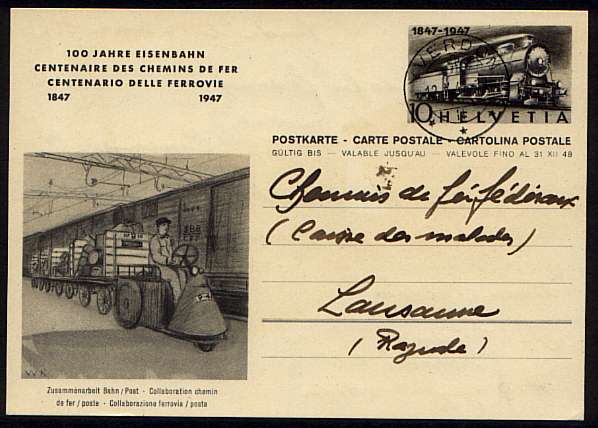 100 JAHRE EISENBAHN
CENTENAIRE DES CHEMINS DE FER
CENTENARIO DELLE FERROVIE
1847 1947
1847-1947
10 HELVETIA
POSTKARTE - CARTE POSTALE - CARTOLINA POSTALE
GÜLTIG BIS — VALABLE JUSQU'AU — VALEVOLE FINO AL 31 XII 48
Chemins de fer fédéraux
(Caisse des malades)
Lausanne
(Razude)
SBB
Zusammenarbeit Bahn / Post - Collaboration chemin
de fer / poste - Collaborazione ferrovia / posta